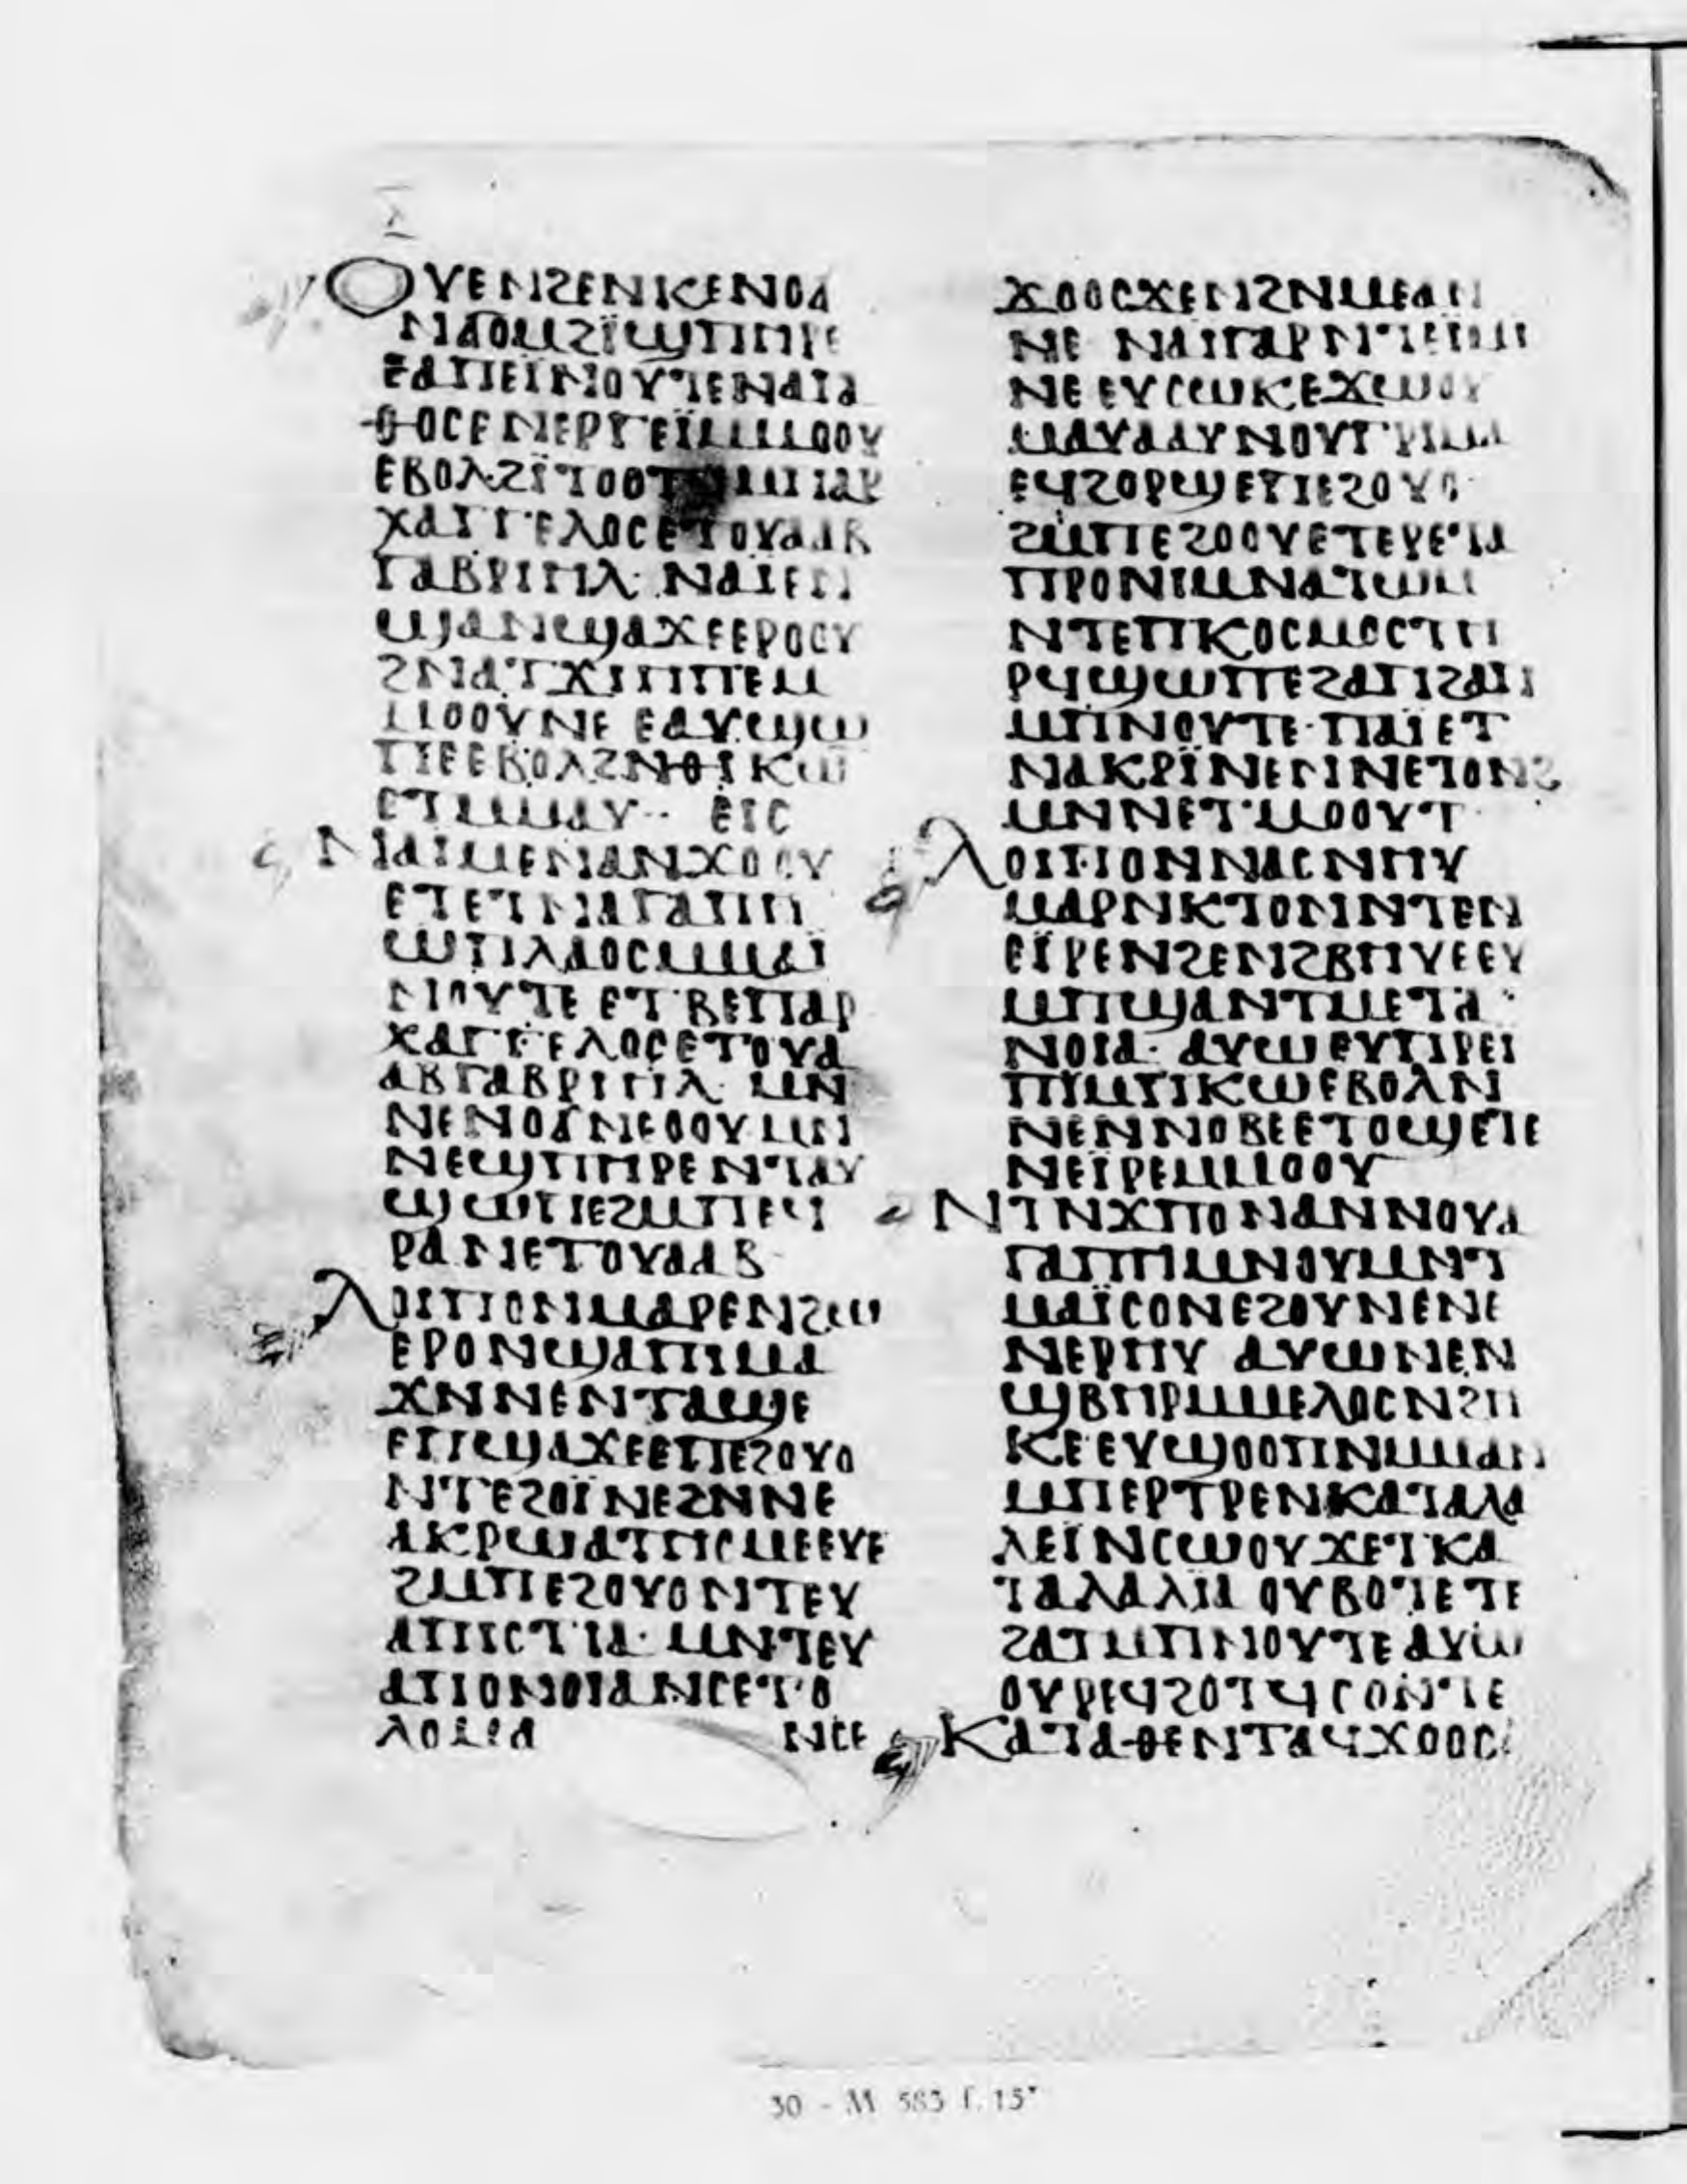 ⲟⲩⲉⲛϩⲉⲛⲕⲉⲛⲟϭ
ⲛϭⲟⲙϩⲓ̈ϣⲡⲏⲣⲉ
ⲉⲁⲡⲉⲓ̈ⲛⲟⲩⲧⲉⲛⲁⲅⲁ
ⲑⲟⲥⲉⲛⲉⲣⲅⲉⲓ̈ⲙⲙⲟⲟⲩ
ⲉⲃⲟⲗϩⲓ̈ⲧⲟⲟⲧ ⲙⲡⲁⲣ
ⲭⲁⲅⲅⲉⲗⲟⲥⲉⲧⲟⲩⲁⲁⲃ
ⲅⲁⲃⲣⲓⲏⲗ· ⲛⲁⲓ̈ⲉⲛ
ϣⲁⲛϣⲁϫⲉⲉⲣⲟⲟⲩ
ϩⲛⲁⲧϫⲓⲏⲡⲉⲙ
ⲙⲟⲟⲩⲛⲉ ⲉⲁⲩϣⲱ
ⲡⲉⲉⲃⲟⲗϩⲛⲑⲓⲕⲱ
ⲉⲧⲙⲙⲁⲩ·· ⲉⲓⲥ
ⲛⲁⲓⲙⲉⲛⲁⲛϫⲟⲟⲩ
ⲉⲧⲉⲧⲛⲁⲅⲁⲡⲏ
ⲱⲡⲗⲁⲟⲥⲙⲙⲁⲓ̈
ⲛⲟⲩⲧⲉ ⲉⲧⲃⲉⲡⲁⲣ
ⲭⲁⲅⲅⲉⲗⲟⲥⲉⲧⲟⲩⲁ
ⲁⲃⲅⲁⲃⲣⲓⲏⲗ· ⲙⲛ
ⲛⲉⲛⲟϭⲛⲉⲟⲟⲩⲙⲛ
ⲛⲉϣⲡⲏⲣⲉⲛⲧⲁⲩ
ϣⲱⲡⲉϩⲙⲡⲉϥ
ⲣⲁⲛⲉⲧⲟⲩⲁⲁⲃ
ⲗⲟⲓⲡⲟⲛⲙⲁⲣⲉⲛϩⲱ
ⲉⲣⲟⲛϣⲁⲡⲓⲙⲁ
ϫⲛⲛⲉⲛⲧⲁϣⲉ
ⲉⲡϣⲁϫⲉⲉⲡⲉϩⲟⲩⲟ
ⲛⲧⲉϩⲟⲓ̈ⲛⲉϩⲛⲛⲉ
ⲁⲕⲣⲱⲁⲧⲏⲥⲙⲉⲉⲩⲉ
ϩⲙⲡⲉϩⲟⲩⲟⲛⲧⲉⲩ
ⲁⲡⲓⲥⲧⲓⲁ· ⲙⲛⲧⲉⲩ
ⲁⲡⲟⲛⲟⲓⲁⲛⲥⲉⲧⲟ
ⲗⲟⲓⲅⲁ ⲛⲥⲉ
ϫⲟⲟⲥϫⲉⲛϩⲛⲙⲉⲁⲛ
ⲛⲉ ⲛⲁⲓⲅⲁⲣⲛⲧⲉⲓⲙⲓ
ⲛⲉⲉⲩⲥⲱⲕⲉϫⲱⲟⲩ
ⲙⲁⲩⲁⲁⲩⲛⲟⲩⲕⲣⲓⲙⲁ
ⲉϥϩⲟⲣϣⲉⲡⲉϩⲟⲩⲟ
ϩⲙⲡⲉϩⲟⲟⲩⲉⲧⲉⲣⲉⲧⲁ
ⲡⲣⲟⲛⲓⲙⲛⲁⲧⲱⲙ
ⲛⲧⲉⲡⲕⲟⲥⲙⲟⲥⲧⲏ
ⲣϥϣⲱⲡⲉϩⲁⲡϩⲁⲡ
ⲙⲡⲛⲟⲩⲧⲉ· ⲡⲁⲓ̈ⲉⲧ
ⲛⲁⲕⲣⲓ̈ⲛⲉⲛⲛⲉⲧⲟⲛϩ
ⲙⲛⲛⲉⲧⲙⲟⲟⲩⲧ
ⲗⲟⲓⲡⲟⲛⲛⲁⲥⲛⲏⲩ
ⲙⲁⲣⲛⲕⲧⲟⲛⲛⲧⲉⲛ
ⲉⲓ̈ⲣⲉⲛϩⲉⲛϩⲃⲏⲩⲉⲉⲩ
ⲙⲡϣⲁⲛⲧⲙⲉⲧⲁ
ⲛⲟⲓⲁ· ⲁⲩⲱⲉⲩⲡⲣⲉⲓ
ⲡⲓⲙⲡⲕⲱⲉⲃⲟⲗⲛ
ⲛⲉⲛⲛⲟⲃⲉⲉⲧⲟϣⲉⲧⲉ
ⲛⲉⲓ̈ⲣⲉⲙⲙⲟⲟⲩ
ⲛⲧⲛϫⲡⲟⲛⲁⲛⲛⲟⲩⲁ
ⲅⲁⲡⲏⲙⲛⲟⲩⲙⲛⲧ
ⲙⲁⲓ̈ⲥⲟⲛⲉϩⲟⲩⲛⲉⲛⲉ
ⲛⲉⲣⲏⲩ ⲁⲩⲱⲛⲉⲛ
ϣⲃⲏⲣⲙⲙⲉⲗⲟⲥⲛϩⲏ
ⲕⲉⲉⲩϣⲟⲟⲡⲛⲙⲙⲁⲛ
ⲙⲡⲉⲣⲧⲣⲉⲛⲕⲁⲧⲁⲗⲁ
ⲗⲉⲓ̈ⲛⲥⲱⲟⲩϫⲉⲧⲕⲁ
ⲧⲁⲗⲁⲗⲓⲁ ⲟⲩⲃⲟⲧⲉⲧⲉ
ϩⲁⲧⲙⲡⲛⲟⲩⲧⲉⲁⲩⲱ
ⲟⲩⲣⲉϥϩⲟⲧϥⲥⲟⲛⲧⲉ
ⲕⲁⲧⲁⲑⲉⲛⲧⲁϥϫⲟⲟⲥ
30 - M 583 f. 15ᵛ